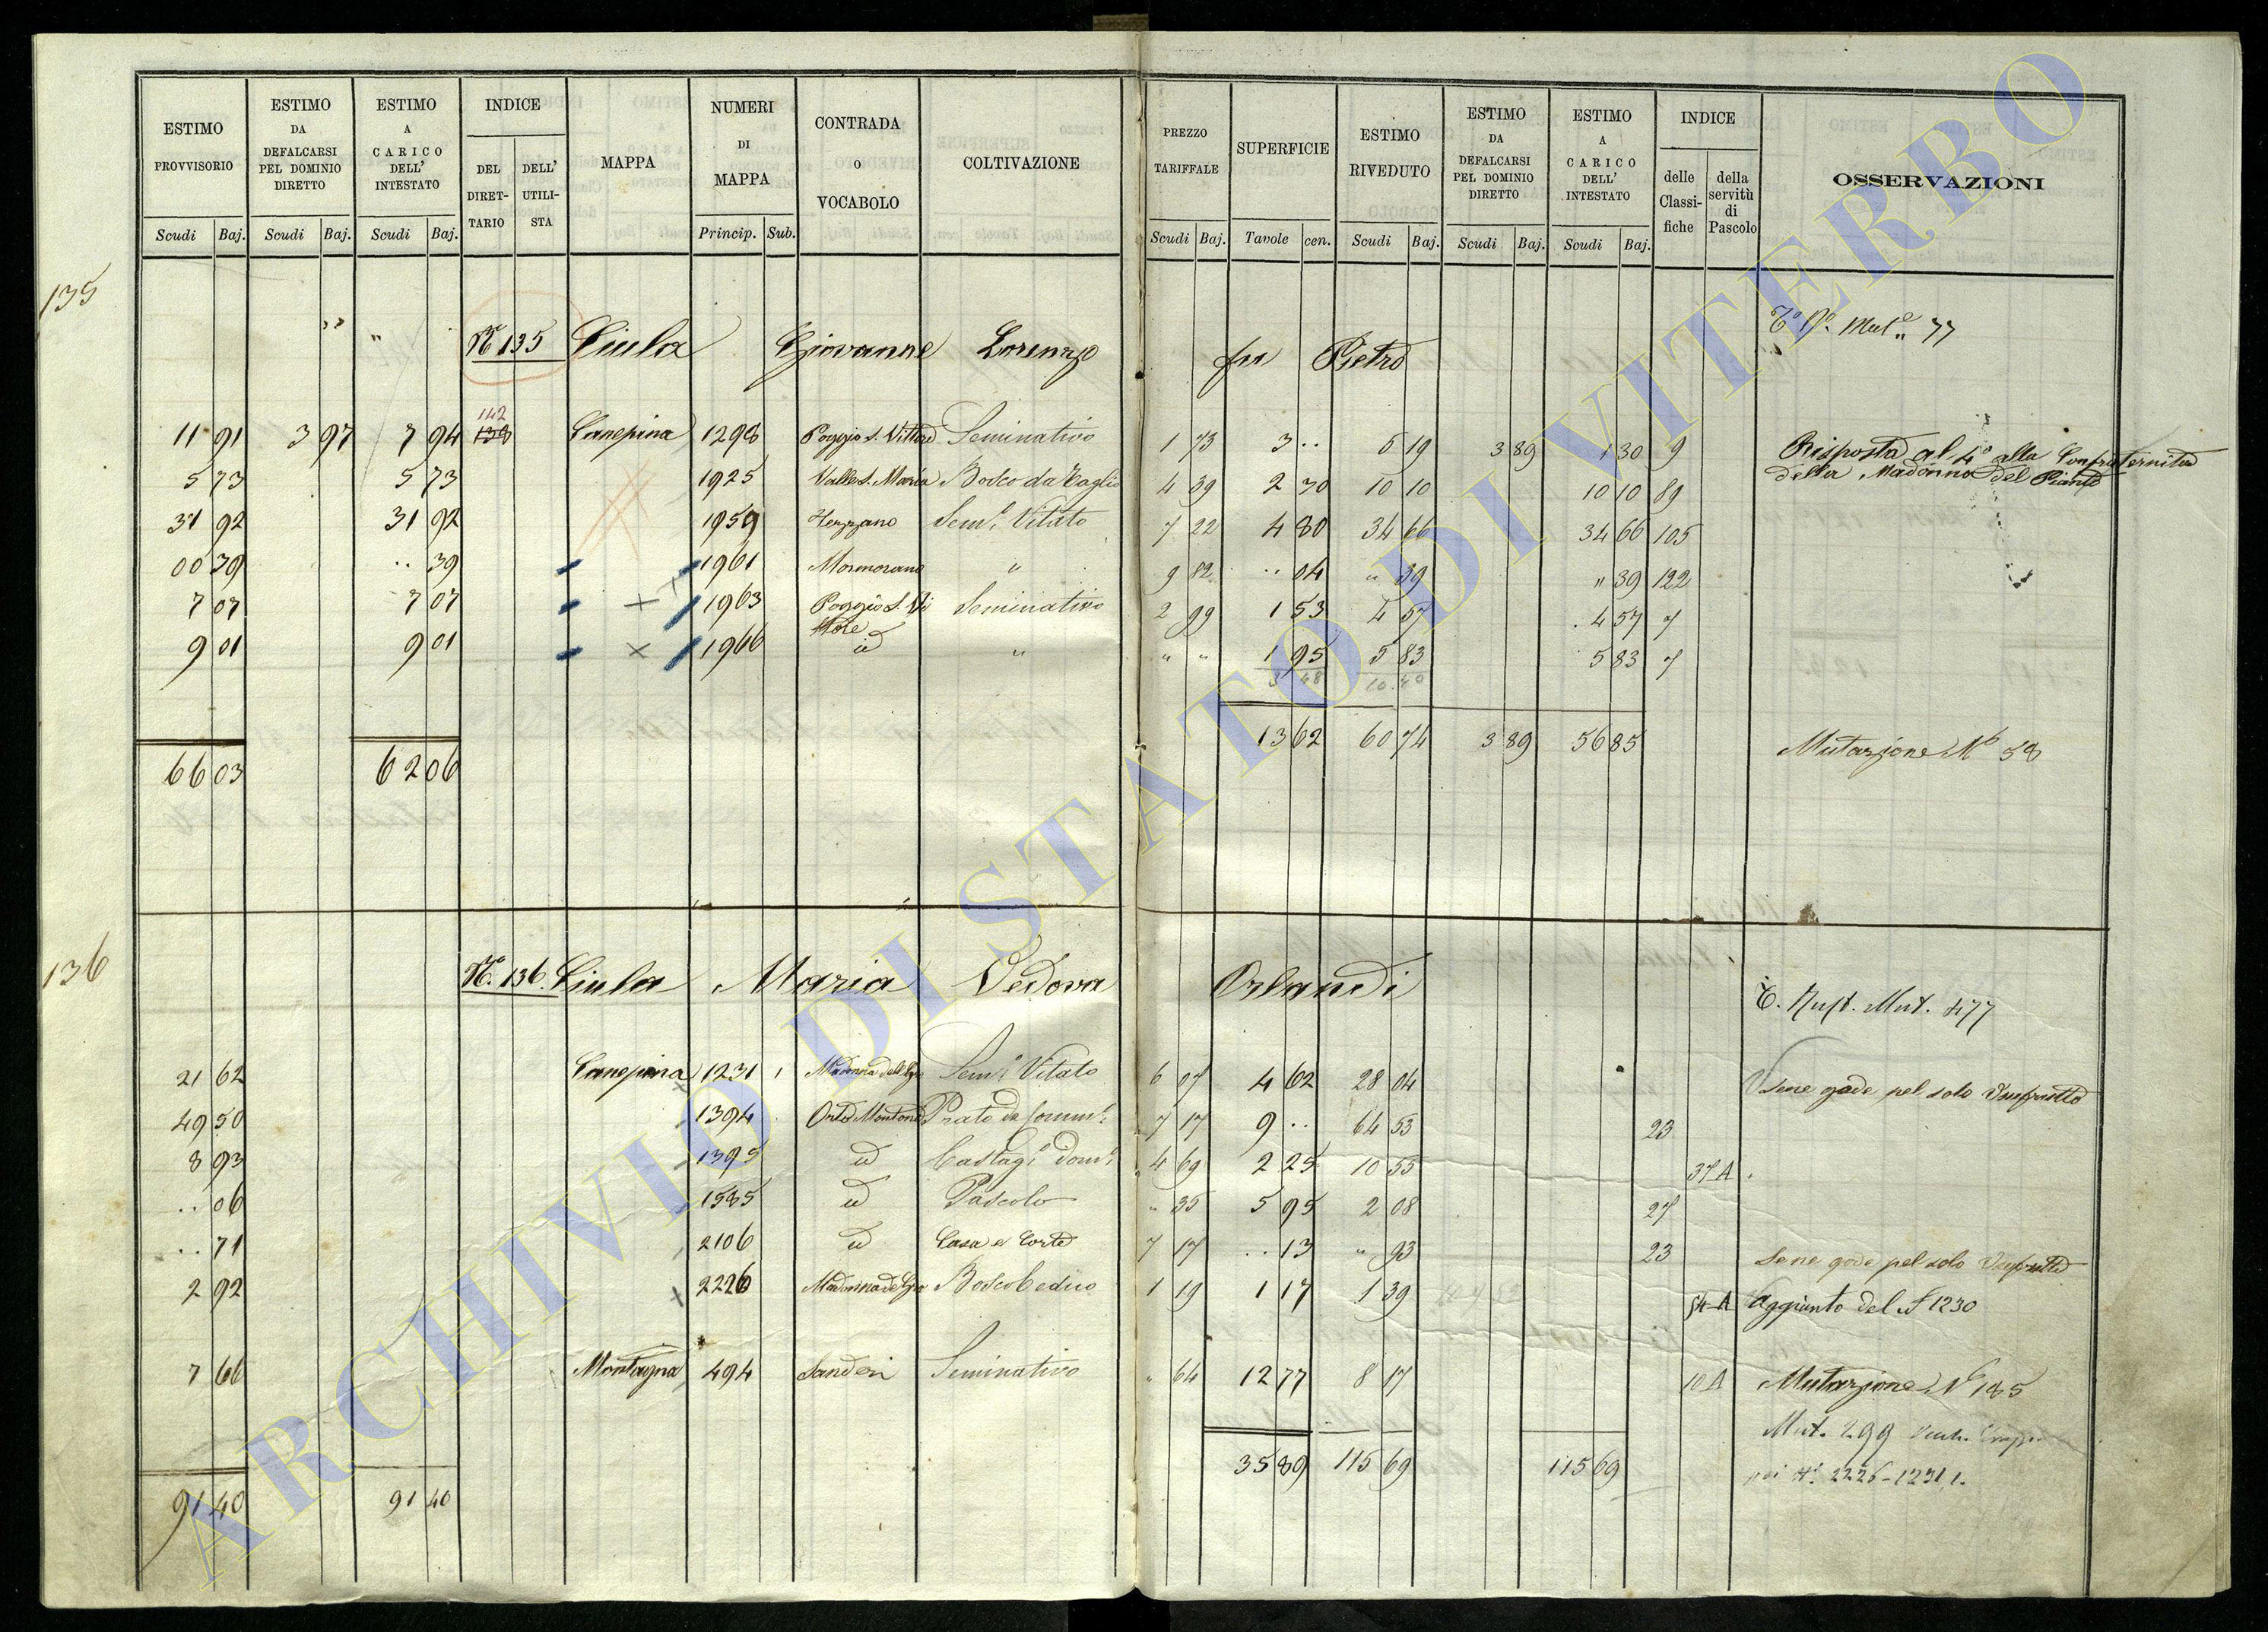 ESTIMO PROVVISORIO
ESTIMO DA DEFALCARSI PEL DOMINIO DIRETTO
ESTIMO A CARICO DELL' INTESTATO
INDICE
DEL DIRETTARIO
DELL' UTILISTA
MAPPA
NUMERI DI MAPPA
CONTRADA o VOCABOLO
COLTIVAZIONE
PREZZO TARIFFALE
SUPERFICIE
ESTIMO RIVEDUTO
ESTIMO DA DEFALCARSI PEL DOMINIO DIRETTO
ESTIMO A CARICO DELL' INTESTATO
INDICE
delle Classifiche
della servitù di Pascolo
OSSERVAZIONI
Scudi Baj. Scudi Baj. Scudi Baj. Princip. Sub. Scudi Baj. Tavole cen. Scudi Baj. Scudi Baj. Scudi Baj.
135
Nº 135 Ciula Giovanne Lorenzo fu Pietro
77
142
11 91 3 97 7 94 138 Canepina 1298 Poggio S. Vittore Seminativo 1 73 3 .. 5 19 3 89 1 30 9 Risposta al 4º alla Confraternita
della Madonna del Pianto
5 73 5 73 1925 Valle S. Maria Bosco da Taglio 4 39 2 30 10 10 10 10 89
31 92 31 92 1959 Semi Vitato 7 22 4 80 34 66 34 66 105
00 39 .. 39 1961 " 9 82 .. 04 " 39 " 39 122
7 07 7 07 1963 Poggio S. Vittore Seminativo 2 99 1 53 4 57 4 57 7
9 01 9 01 1966 id " " " 1 95 5 83 5 83 7
3 48 10.40
13 62 60 74 3 89 56 85 Mutazione Nº 58
66 03 62 06
136
Nº. 136. Ciula Maria Vedova Orlandi
C. Rust. Mut. 477
21 62 Canepina 1231 1 Semi Vitato 6 07 4 62 28 04 Sene gode pel solo Usufrutto
49 50 1394 Orto Montone Prato 7 17 9 .. 64 53 23
8 93 1395 id Castagi domi 4 69 2 25 10 55 37 A
.. 06 1585 id Pascolo " 35 5 95 2 08 27
.. 71 2106 id Casa e Corte 7 17 .. 13 " 93 23 Sene gode pel solo Usufrutto
2 92 2226 Bosco Ceduo 1 19 1 17 1 39 54 A Aggiunto del Nº 1230
7 66 Montagna 494 Sanderi Seminativo " 64 12 77 8 17 10 A Mutazione Nº 185
Mut. 299
35 89 115 69 115 69
2226-1231,1.
91 40 91 40
ARCHIVIO DI STATO DI VITERBO